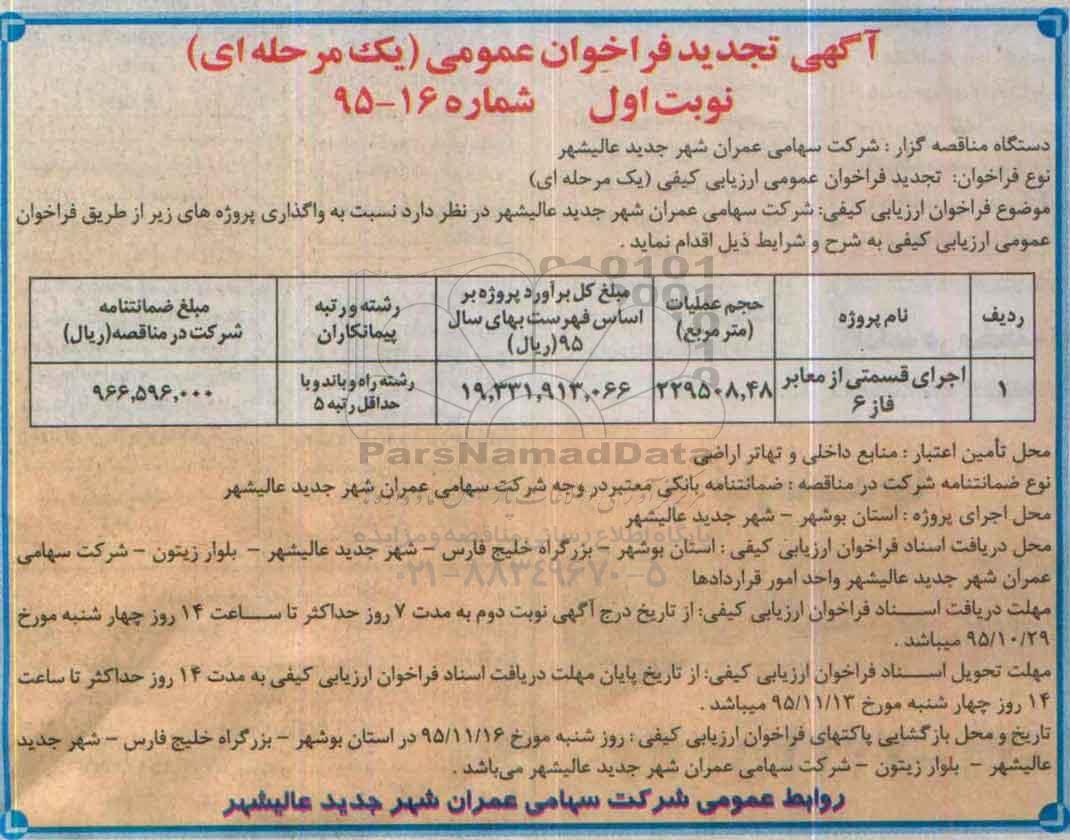 آگهی تجدید فراخوان عمومی (یک مرحله ای)
نوبت اول شماره ۱۶-۹۵
دستگاه مناقصه گزار : شرکت سهامی عمران شهر جدید عالیشهر
نوع فراخوان: تجدید فراخوان عمومی ارزیابی کیفی (یک مرحله ای)
موضوع فراخوان ارزیابی کیفی: شرکت سهامی عمران شهر جدید عالیشهر در نظر دارد نسبت به واگذاری پروژه های زیر از طریق فراخوان
عمومی ارزیابی کیفی به شرح و شرایط ذیل اقدام نماید .
ردیف
نام پروژه
حجم عملیات
(متر مربع)
مبلغ کل برآورد پروژه بر
اساس فهرست بهای سال
۹۵(ریال)
رشته و رتبه
پیمانکاران
مبلغ ضمانتنامه
شرکت در مناقصه(ریال)
۱
اجرای قسمتی از معابر
فاز ۶
۲۲۹۵۰۸,۴۸
۱۹,۳۳۱,۹۱۳,۰۶۶
رشته راه و باند و با
حداقل رتبه ۵
۹۶۶,۵۹۶,۰۰۰
ParsNamadData
محل تأمین اعتبار : منابع داخلی و تهاتر اراضی
نوع ضمانتنامه شرکت در مناقصه : ضمانتنامه بانکی معتبر در وجه شرکت سهامی عمران شهر جدید عالیشهر
محل اجرای پروژه : استان بوشهر – شهر جدید عالیشهر
پایگاه اطلاع رسانی مناقصه و مزایده
محل دریافت اسناد فراخوان ارزیابی کیفی : استان بوشهر – بزرگراه خلیج فارس – شهر جدید عالیشهر – بلوار زیتون – شرکت سهامی
عمران شهر جدید عالیشهر واحد امور قراردادها
۰۲۱-۸۸۳۴۹۶۷۰-۵
مهلت دریافت اسناد فراخوان ارزیابی کیفی: از تاریخ درج آگهی نوبت دوم به مدت ۷ روز حداکثر تا ساعت ۱۴ روز چهار شنبه مورخ
۹۵/۱۰/۲۹ میباشد .
مهلت تحویل اسناد فراخوان ارزیابی کیفی: از تاریخ پایان مهلت دریافت اسناد فراخوان ارزیابی کیفی به مدت ۱۴ روز حداکثر تا ساعت
۱۴ روز چهار شنبه مورخ ۹۵/۱۱/۱۳ میباشد .
تاریخ و محل بازگشایی پاکتهای فراخوان ارزیابی کیفی : روز شنبه مورخ ۹۵/۱۱/۱۶ در استان بوشهر – بزرگراه خلیج فارس – شهر جدید
عالیشهر – بلوار زیتون – شرکت سهامی عمران شهر جدید عالیشهر می‌باشد .
روابط عمومی شرکت سهامی عمران شهر جدید عالیشهر